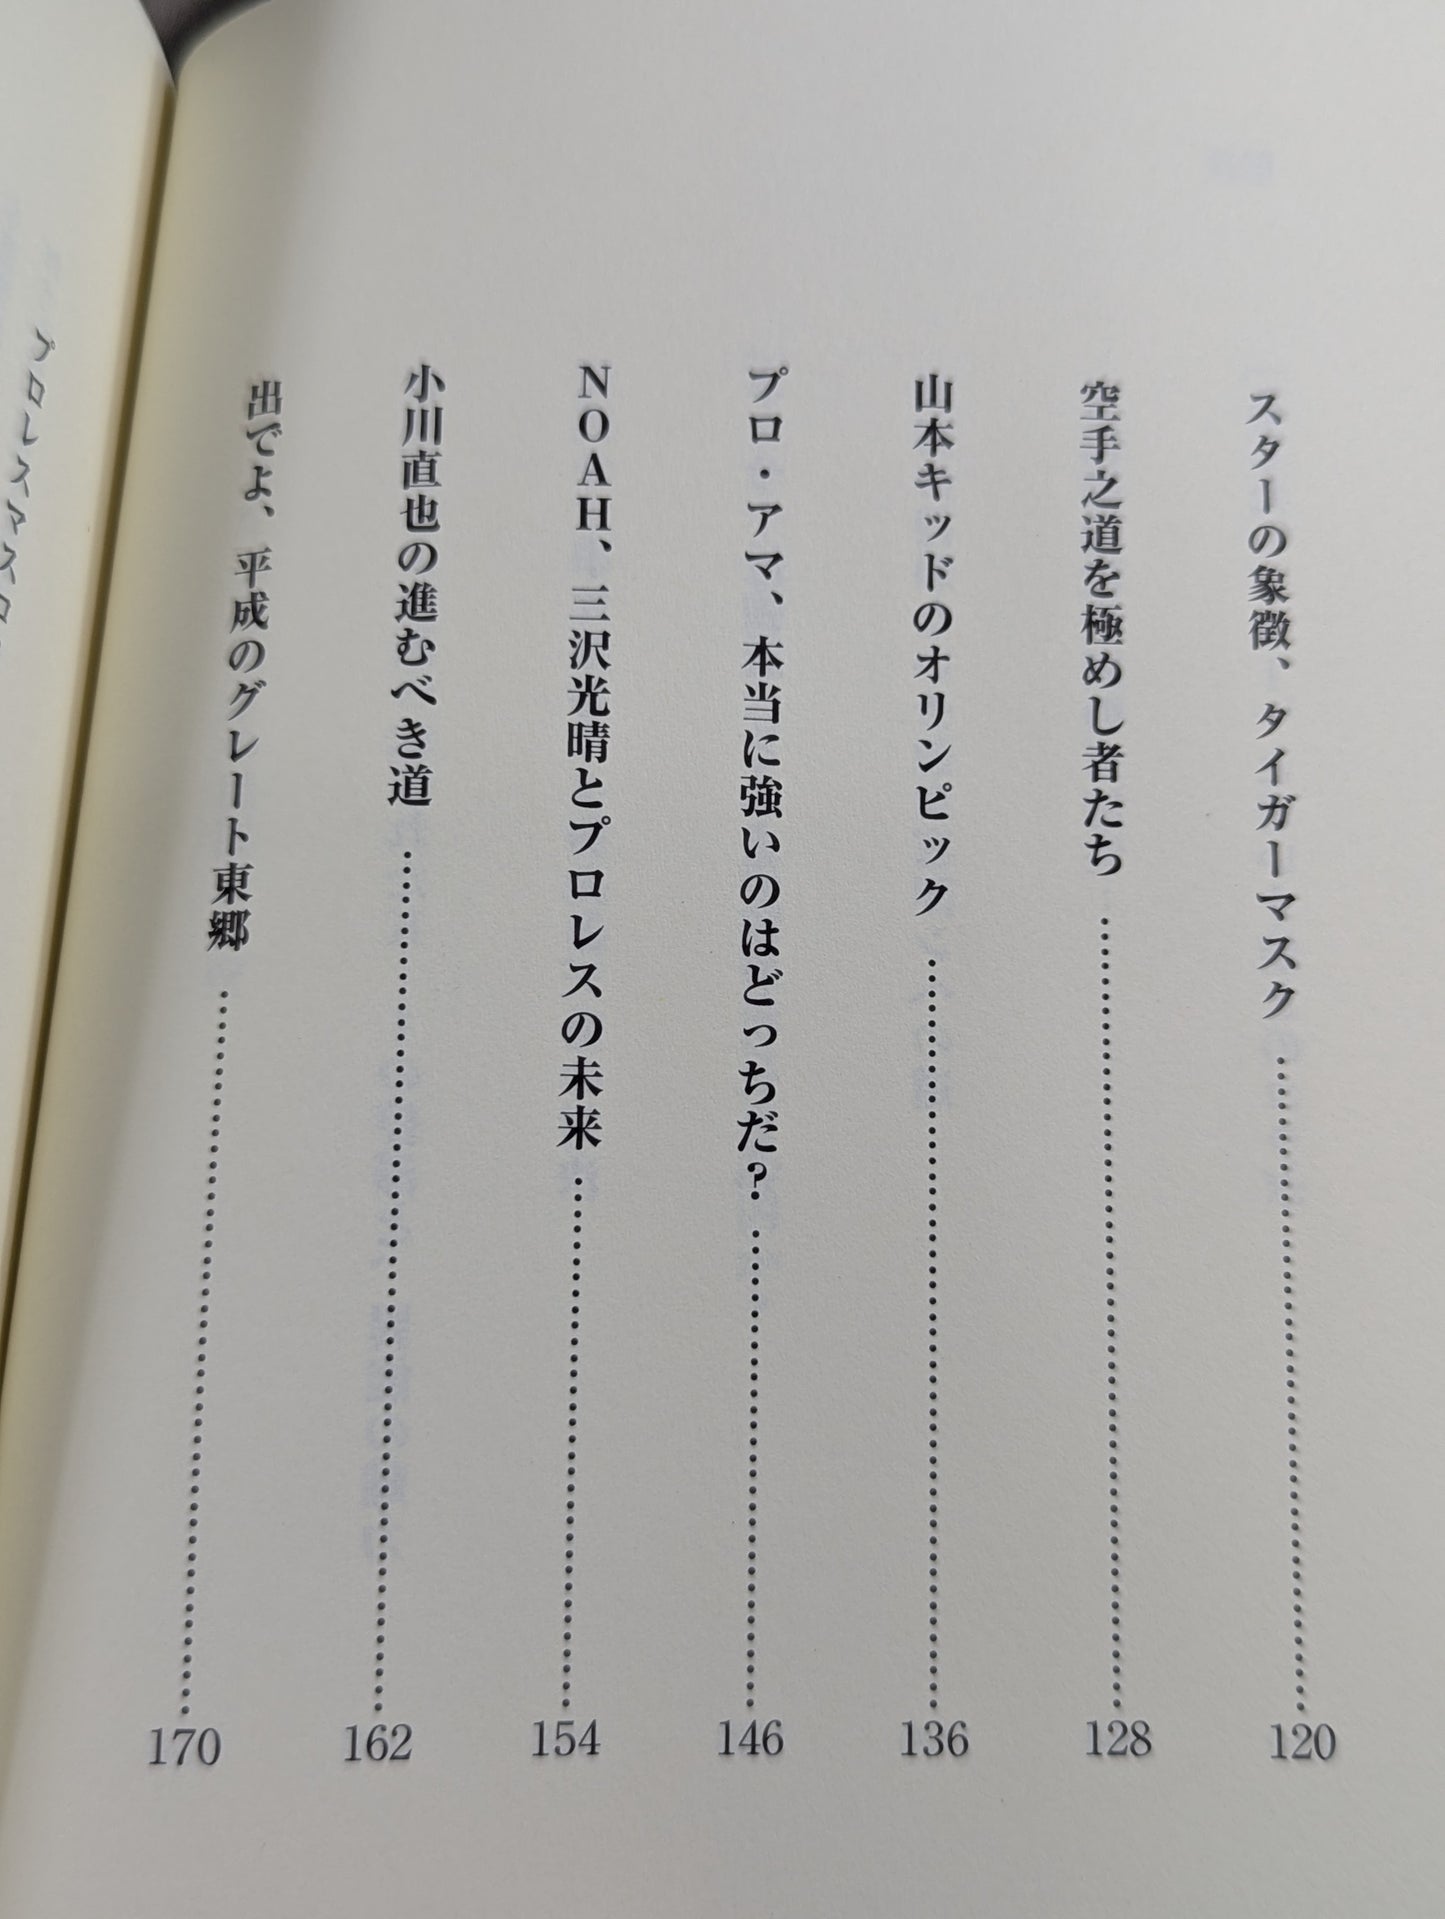 スターの象徴、タイガーマスク……120
空手之道を極めし者たち……128
山本キッドのオリンピック……136
プロ・アマ、本当に強いのはどっちだ？……146
NOAH、三沢光晴とプロレスの未来……154
小川直也の進むべき道……162
出でよ、平成のグレート東郷……170
プロレスマスコ